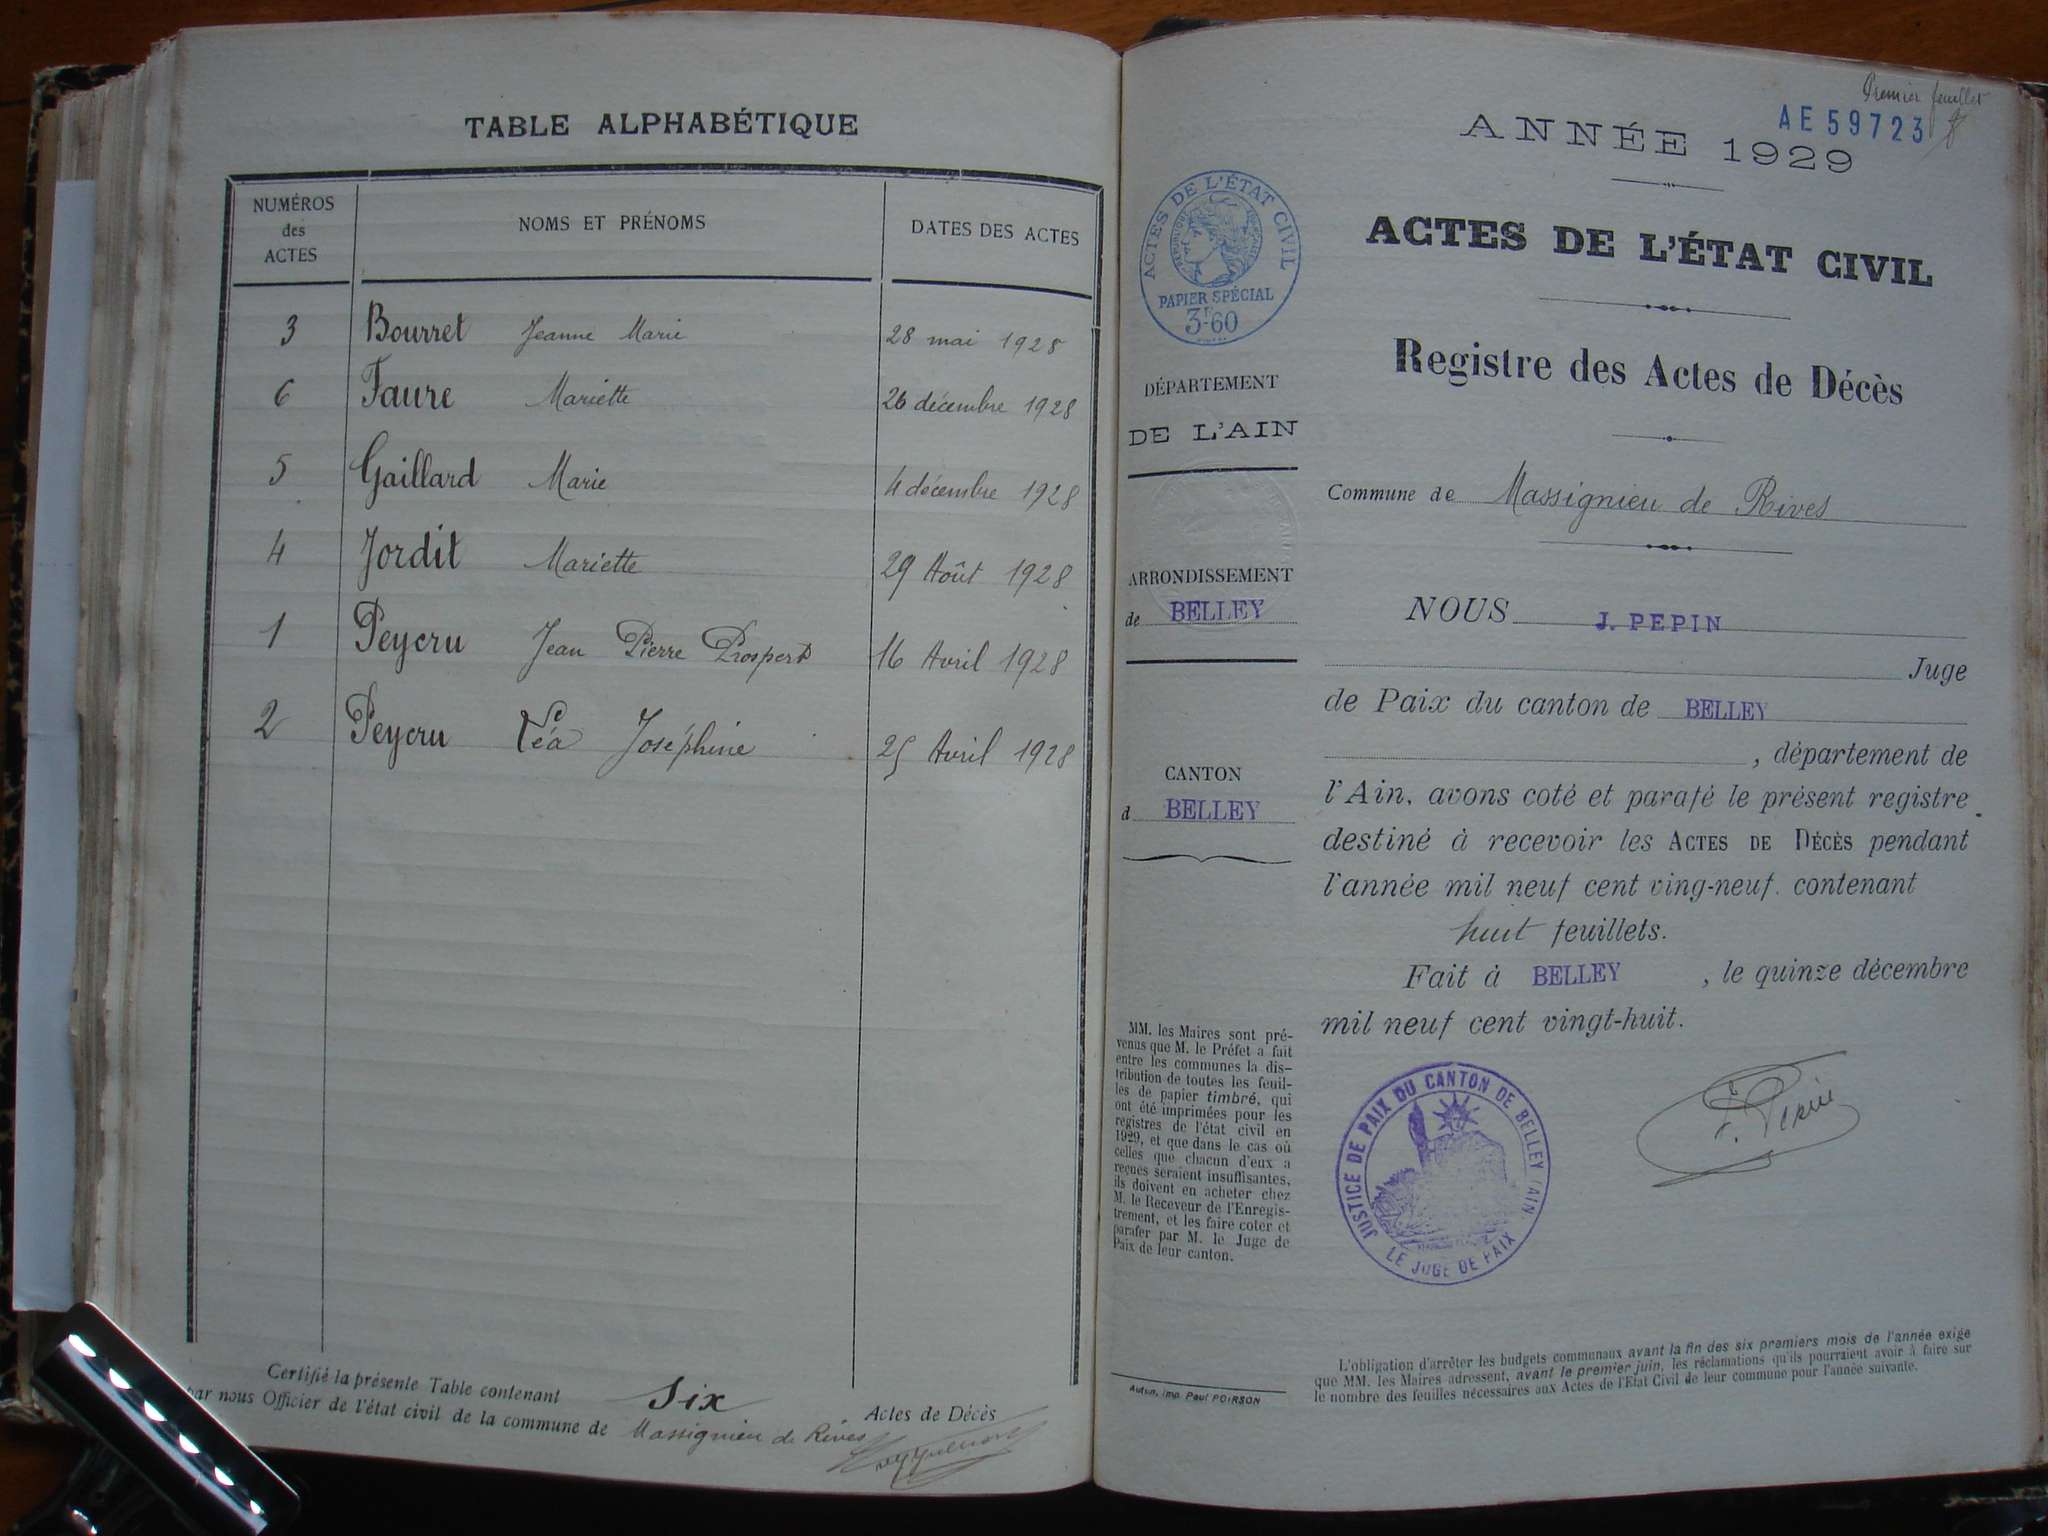 TABLE ALPHABÉTIQUE
NUMÉROS des ACTES NOMS ET PRÉNOMS DATES DES ACTES
3 Bourret Jeanne Marie 28 mai 1928
6 Faure Mariette 26 décembre 1928
5 Gaillard Marie 4 décembre 1928
4 Jordit Mariette 29 Août 1928
1 Peycru Jean Pierre Prospert 16 Avril 1928
2 Peycru Léa Joséphine 25 Avril 1928
Certifié la présente Table contenant Six Actes de Décès
par nous Officier de l'état civil de la commune de Massignieu de Rives
Premier feuillet
AE 59723
ANNÉE 1929
ACTES DE L'ÉTAT CIVIL
RÉPUBLIQUE FRANÇAISE
PAPIER SPÉCIAL
3F60
ACTES DE L'ÉTAT CIVIL
Registre des Actes de Décès
DÉPARTEMENT
DE L'AIN
Commune de Massignieu de Rives
ARRONDISSEMENT
de BELLEY
CANTON
d BELLEY
NOUS J. PEPIN
Juge
de Paix du canton de BELLEY
, département de
l'Ain, avons coté et parafé le présent registre
destiné à recevoir les ACTES DE DÉCÈS pendant
l'année mil neuf cent ving-neuf. contenant
huit feuillets.
Fait à BELLEY , le quinze décembre
mil neuf cent vingt-huit.
MM. les Maires sont pré-
venus que M. le Préfet a fait
entre les communes la dis-
tribution de toutes les feuil-
les de papier timbré, qui
ont été imprimées pour les
registres de l'état civil en
1929, et que dans le cas où
celles que chacun d'eux a
reçues seraient insuffisantes,
ils doivent en acheter chez
M. le Receveur de l'Enregis-
trement, et les faire coter et
parafer par M. le Juge de
Paix de leur canton.
JUSTICE DE PAIX DU CANTON DE BELLEY (AIN)
LE JUGE DE PAIX
J. Pepin
L'obligation d'arrêter les budgets communaux avant la fin des six premiers mois de l'année exige
que MM. les Maires adressent, avant le premier juin, les réclamations qu'ils pourraient avoir à faire sur
le nombre des feuilles nécessaires aux Actes de l'Etat Civil de leur commune pour l'année suivante.
Autun, imp. Paul POIRSON